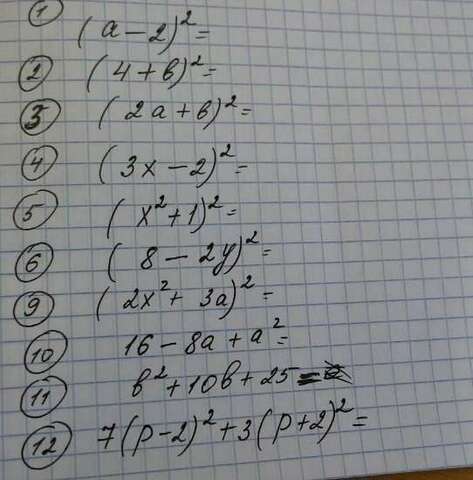 1 (a-2)²=
2 (4+b)²=
3 (2a+b)²=
4 (3x-2)²=
5 (x²+1)²=
6 (8-2y)²=
9 (2x²+3a)²=
10 16-8a+a²=
11 b²+10b+25=
12 7(p-2)²+3(p+2)²=